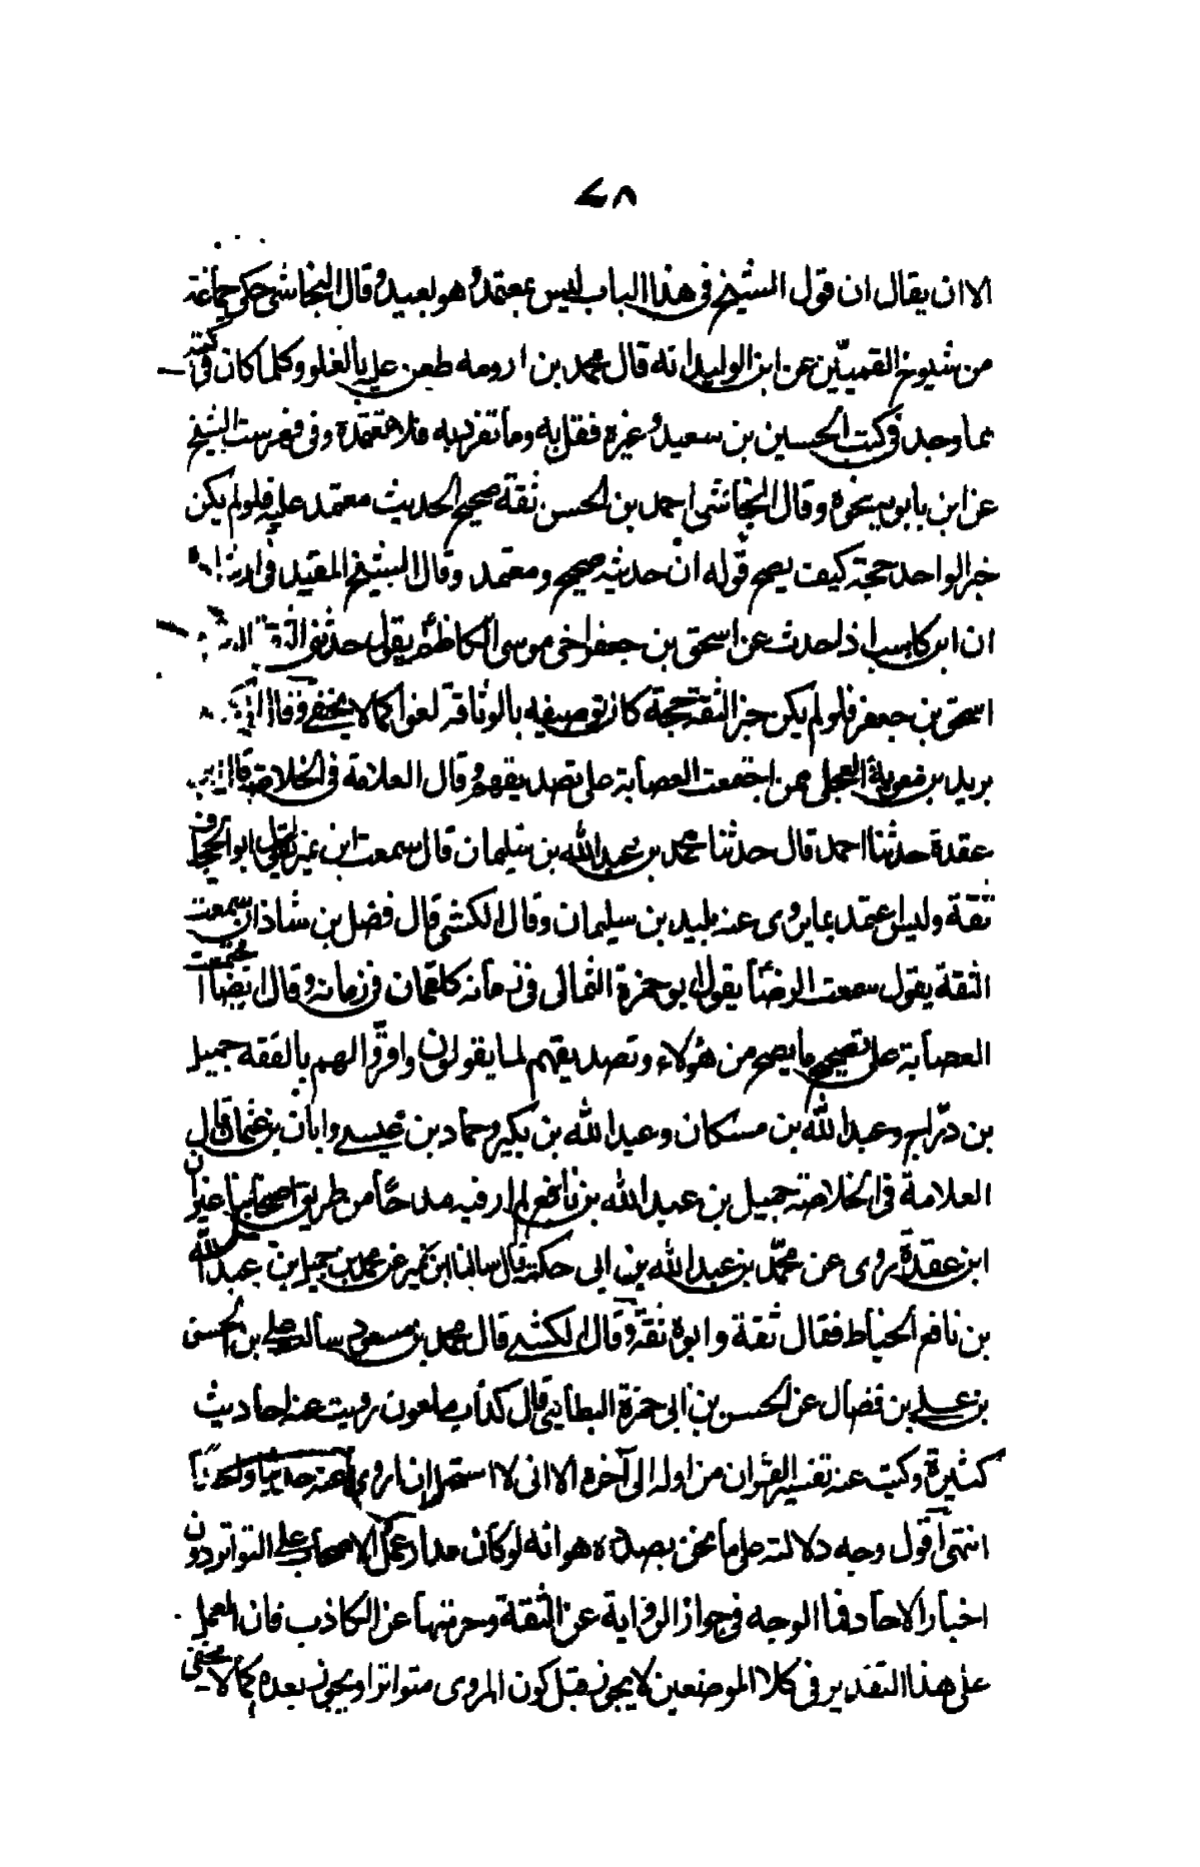 ٤٨
الا ان يقال ان قول الشيخ في هذا الباب ليس بمعتمد وهو بعيد وقال النجاشي حكى جماعة
من شيوخ القميين عن ابن الوليد انه قال محمد بن ارومه طعن عليه بالغلو وكلما كان في كتبه
مما وجد في كتب الحسين بن سعيد وغيره فقل به وما تفرد به فلا تعتمده وفي فهرست الشيخ
عن ابن بابويه نحوه وقال النجاشي احمد بن الحسن ثقة صحيح الحديث معتمد عليه فلو لم يكن
خبر الواحد حجة كيف يصح قوله ان حديثه صحيح ومعتمد وقال الشيخ المفيد في
ان ابن كاسب اذا حدث عن اسحق بن جعفر اخي موسى الكاظم يقول حدثني الثقة
اسحق بن جعفر فلو لم يكن خبر الثقة حجة كان توصيفه بالوثاقة لغوا كما لا يخفى وقال
بريد بن معوية العجلي ممن اجتمعت العصابة على تصديقهم وقال العلامة في الخلاصة قال ابن
عقدة حدثنا احمد قال حدثنا محمد بن عبد الله بن سليمان قال سمعت ابن نمير يقول ابو الجحاف
ثقة وليس اعتمد بما يروى عنه بليد بن سليمان وقال الكشي قال فضل بن شاذان سمعت
الثقة يقول سمعت الرضا يقول ابو حمزة الثمالي في زمانه كلقمان في زمانه وقال ايضا اجتمعت
العصابة على تصحيح ما يصح من هؤلاء وتصديقهم لما يقولون واقروا لهم بالفقه جميل
بن دراج وعبد الله بن مسكان وعبد الله بن بكير وحماد بن عيسى وابان بن عثمان قال
العلامة في الخلاصة جميل بن عبد الله بن نافع لم ار فيه مدحا من طريق اصحابنا غير ان
ابن عقدة روى عن محمد بن عبد الله بن ابي حكمة قال سالنا ابن نمير عن محمد بن جميل بن عبد الله
بن نافع الحناط فقال ثقة وابوه ثقة وقال الكشي قال محمد بن مسعود سالت علي بن الحسن
بن علي بن فضال عن الحسن بن ابي حمزة البطائني قال كذاب ملعون رويت عنه احاديث
كثيرة وكتبت عنه تفسير القرآن من اوله الى آخره الا اني لا استحل ان اروي عنه حديثا واحدا
انتهى اقول وجه دلالته على ما نحن بصدده هو انه لو كان مدار عمل الاصحاب على التواتر دون
اخبار الاحاد فما الوجه في جواز الرواية عن الثقة وحرمتها عن الكاذب فان العمل
على هذا التقدير في كلا الموضعين لا يجوز قبل كون المروى متواترا ويجوز بعده كما لا يخفى